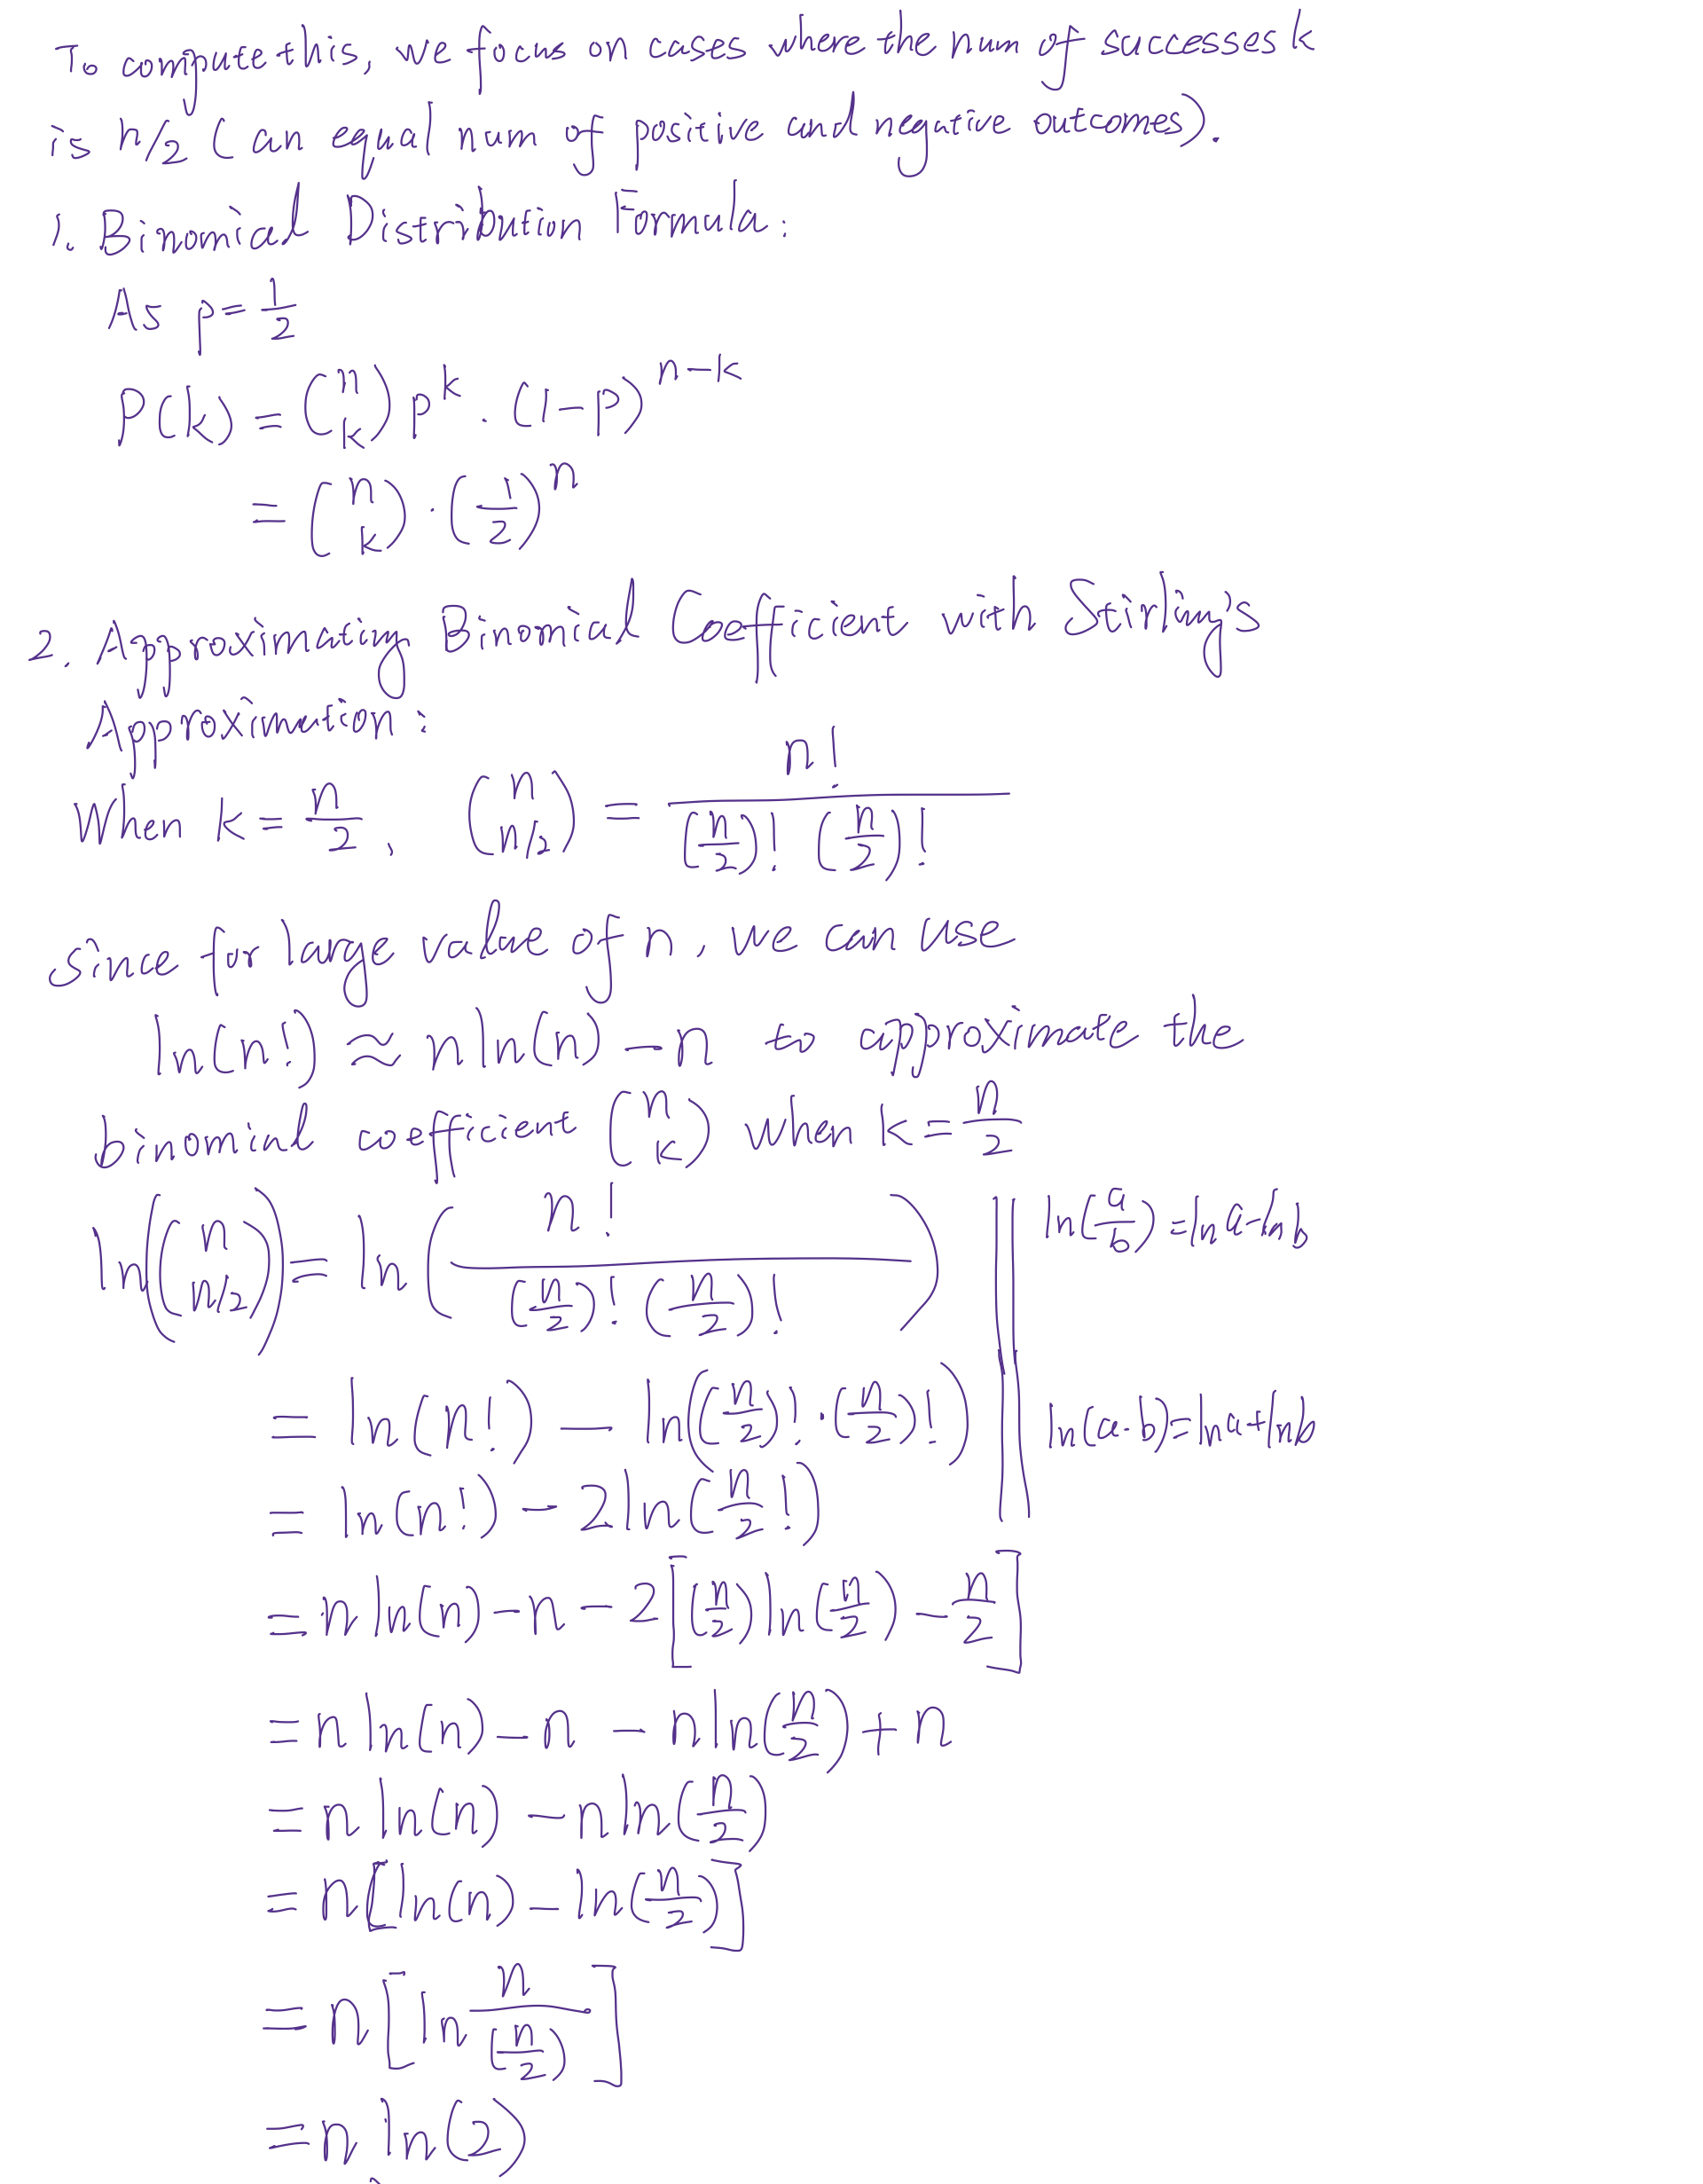 To compute this, we focus on cases where the num of successes k
is n/2 (an equal num of positive and negative outcomes).
1. Binomial Distribution Formula:
As p = 1/2
P(k) = (n k) p^k · (1-p)^(n-k)
= (n k) · (1/2)^n
2. Approximating Binomial Coefficient with Stirling's
Approximation:
When k = n/2, (n n/2) = n! / ((n/2)! (n/2)!)
since for large value of n, we can use
ln(n!) ≈ n ln(n) - n to approximate the
binomial coefficient (n k) when k = n/2
ln((n n/2)) = ln(n! / ((n/2)! (n/2)!)) || ln(a/b) = ln a - ln b
= ln(n!) - ln((n/2)! · (n/2)!) || ln(a·b) = ln a + ln b
= ln(n!) - 2 ln(n/2 !)
= n ln(n) - n - 2[(n/2) ln(n/2) - n/2]
= n ln(n) - n - n ln(n/2) + n
= n ln(n) - n ln(n/2)
= n[ln(n) - ln(n/2)]
= n[ln n/(n/2)]
= n ln(2)